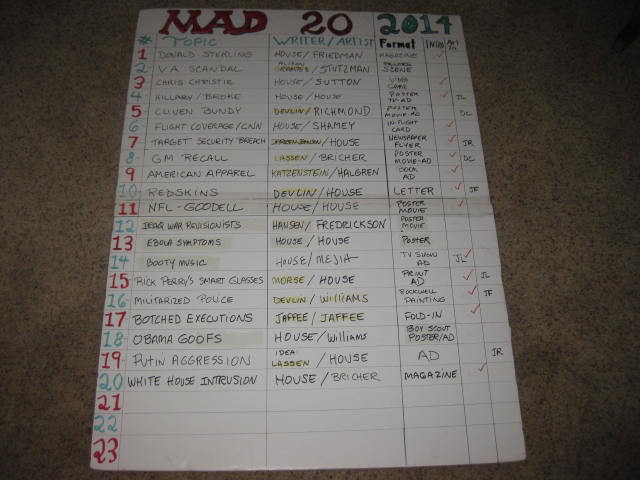 MAD 20 2014
# TOPIC WRITER/ARTIST Format INTRO
1 DONALD STERLING HOUSE/FRIEDMAN MAGAZINE
2 V.A. SCANDAL /STUTZMAN SCENE
3 CHRIS CHRISTIE HOUSE/SUTTON VIDEO GAME
4 HILLARY/BROKE HOUSE/HOUSE POSTER TV-AD JL
5 CLIVEN BUNDY DEVLIN/RICHMOND POSTER MOVIE-AD DC
6 FLIGHT COVERAGE/CNN HOUSE/SHAMEY IN-FLIGHT CARD
7 TARGET SECURITY BREACH /HOUSE NEWSPAPER FLYER JR
8 GM RECALL LASSEN/BRICHER POSTER MOVIE-AD DC
9 AMERICAN APPAREL KATZENSTEIN/HALGREN AD
10 REDSKINS DEVLIN/HOUSE LETTER JF
11 NFL-GOODELL HOUSE/HOUSE POSTER MOVIE
12 IRAQ WAR REVISIONISTS HANSEN/FREDRICKSON POSTER MOVIE
13 EBOLA SYMPTOMS HOUSE/HOUSE POSTER
14 BOOTY MUSIC HOUSE/MEJIA TV SHOW AD JL
15 RICK PERRY'S SMART GLASSES MORSE/HOUSE PRINT AD JL
16 MILITARIZED POLICE DEVLIN/WILLIAMS ROCKWELL PAINTING JF
17 BOTCHED EXECUTIONS JAFFEE/JAFFEE FOLD-IN
18 OBAMA GOOFS HOUSE/Williams BOY SCOUT POSTER/AD
19 PUTIN AGGRESSION IDEA: LASSEN/HOUSE AD IR
20 WHITE HOUSE INTRUSION HOUSE/BRICHER MAGAZINE
21
22
23